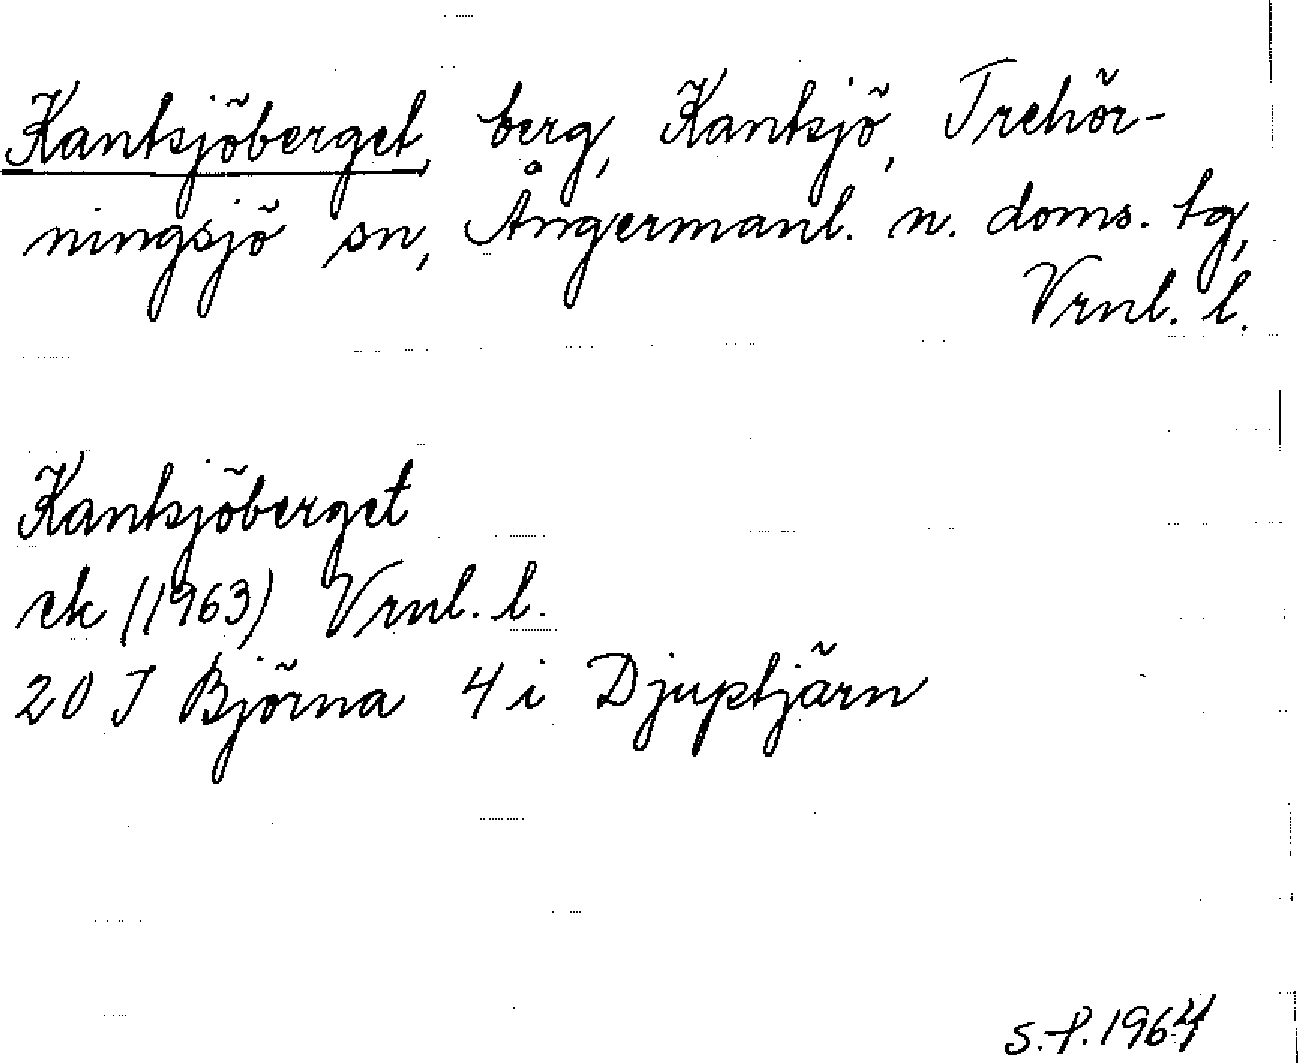 Kantsjöberget, berg, Kantsjö, Trehör-
ningsjö sn, Ångermanl. n. doms. tg,
Vrnl. l.
Kantsjöberget
ek (1963) Vrnl. l.
20 J Björna 4 i Djuptjärn
S.-P. 1964